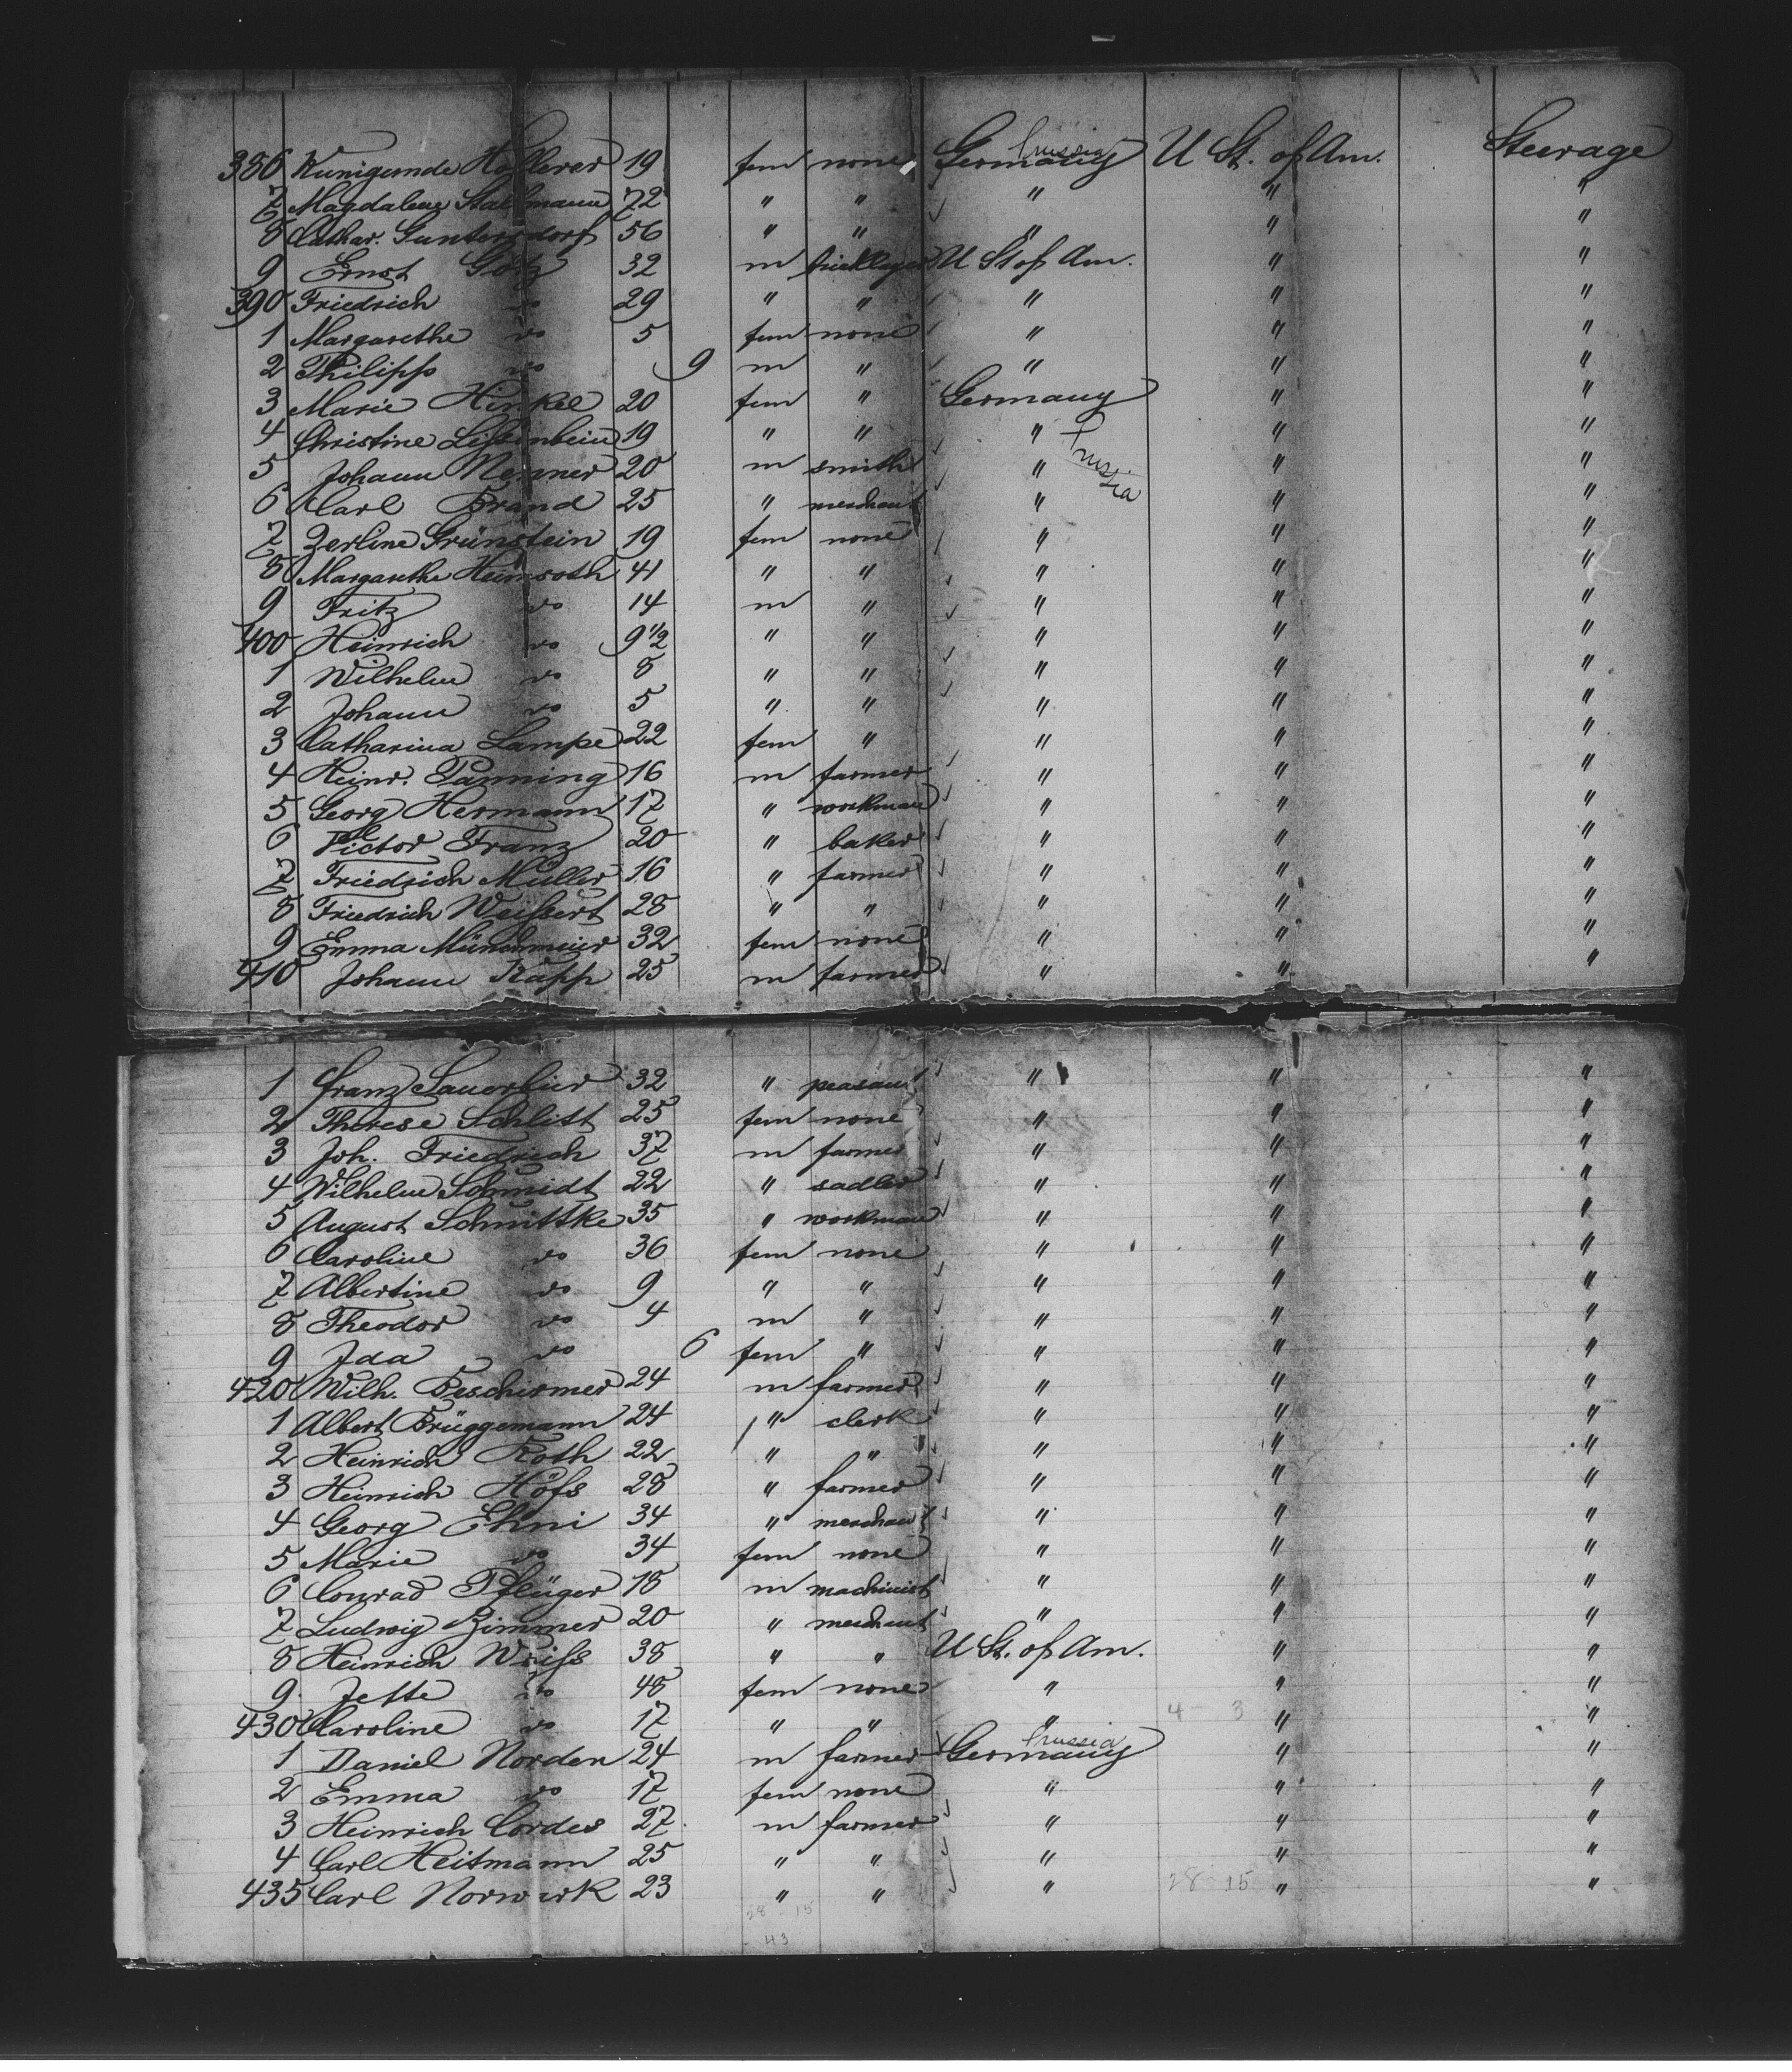 386 Kunigunde Hollerer 19 fem none Germany Prussia U St. of Am. Steerage
7 Magdalene Stallmann 72 " " " " "
8 Cathar. Guntersdorf 56 " " " " "
9 Ernst Götz 32 m bricklayer U St of Am. " "
390 Friedrich do 29 " " " " "
1 Margarethe do 5 fem none " " "
2 Philipp do 9 m " " " "
3 Marie Hinkel 20 fem " Germany " "
4 Christine 19 " " " Prussia " "
5 Johann 20 m smith " " "
6 Carl Brand 25 " merchant " " "
7 Zerline Grünstein 19 fem none " " "
8 Margarethe Heinroth 41 " " " " "
9 Fritz do 14 m " " " "
400 Heinrich do 9 1/2 " " " " "
1 Wilhelm do 8 " " " " "
2 Johann do 5 " " " " "
3 Catharina Lampe 22 fem " " " "
4 Heinr. Panning 16 m farmer " " "
5 Georg Hermann 17 " workman " " "
6 Victor Franz 20 " baker " " "
7 Friedrich Müller 16 " farmer " " "
8 Friedrich Weissert 28 " " " " "
9 Emma Münchmeier 32 fem none " " "
410 Johann Rapp 25 m farmer " " "
1 Franz Sauerbier 32 " peasant " " "
2 Therese Schlitt 25 fem none " " "
3 Joh. Friedrich 37 m farmer " " "
4 Wilhelm Schmidt 22 " sadler " " "
5 August Schnittke 35 " workman " " "
6 Caroline do 36 fem none " " "
7 Albertine do 9 " " " " "
8 Theodor do 4 m " " " "
9 Ida do 6 fem " " " "
420 Wilh. Beschirmer 24 m farmer " " "
1 Albert Brüggemann 24 " clerk " " "
2 Heinrich Roth 22 " " " " "
3 Heinrich Höfs 28 " farmer " " "
4 Georg Ehni 34 " merchant " " "
5 Marie do 34 fem none " " "
6 Conrad Pflüger 18 m machinist " " "
7 Ludwig Zimmer 20 " merchant " " "
8 Heinrich Weiss 38 " " U St. of Am. " "
9 Jette do 48 fem none " " "
430 Caroline do 17 " " " 4 - 3 " "
1 Daniel Norden 24 m farmer Germany Prussia " "
2 Emma do 17 fem none " " "
3 Heinrich Cordes 27 m farmer " " "
4 Carl Heitmann 25 " " " " "
435 Carl Norwerk 23 " " " 28 15 " "
28 15
43